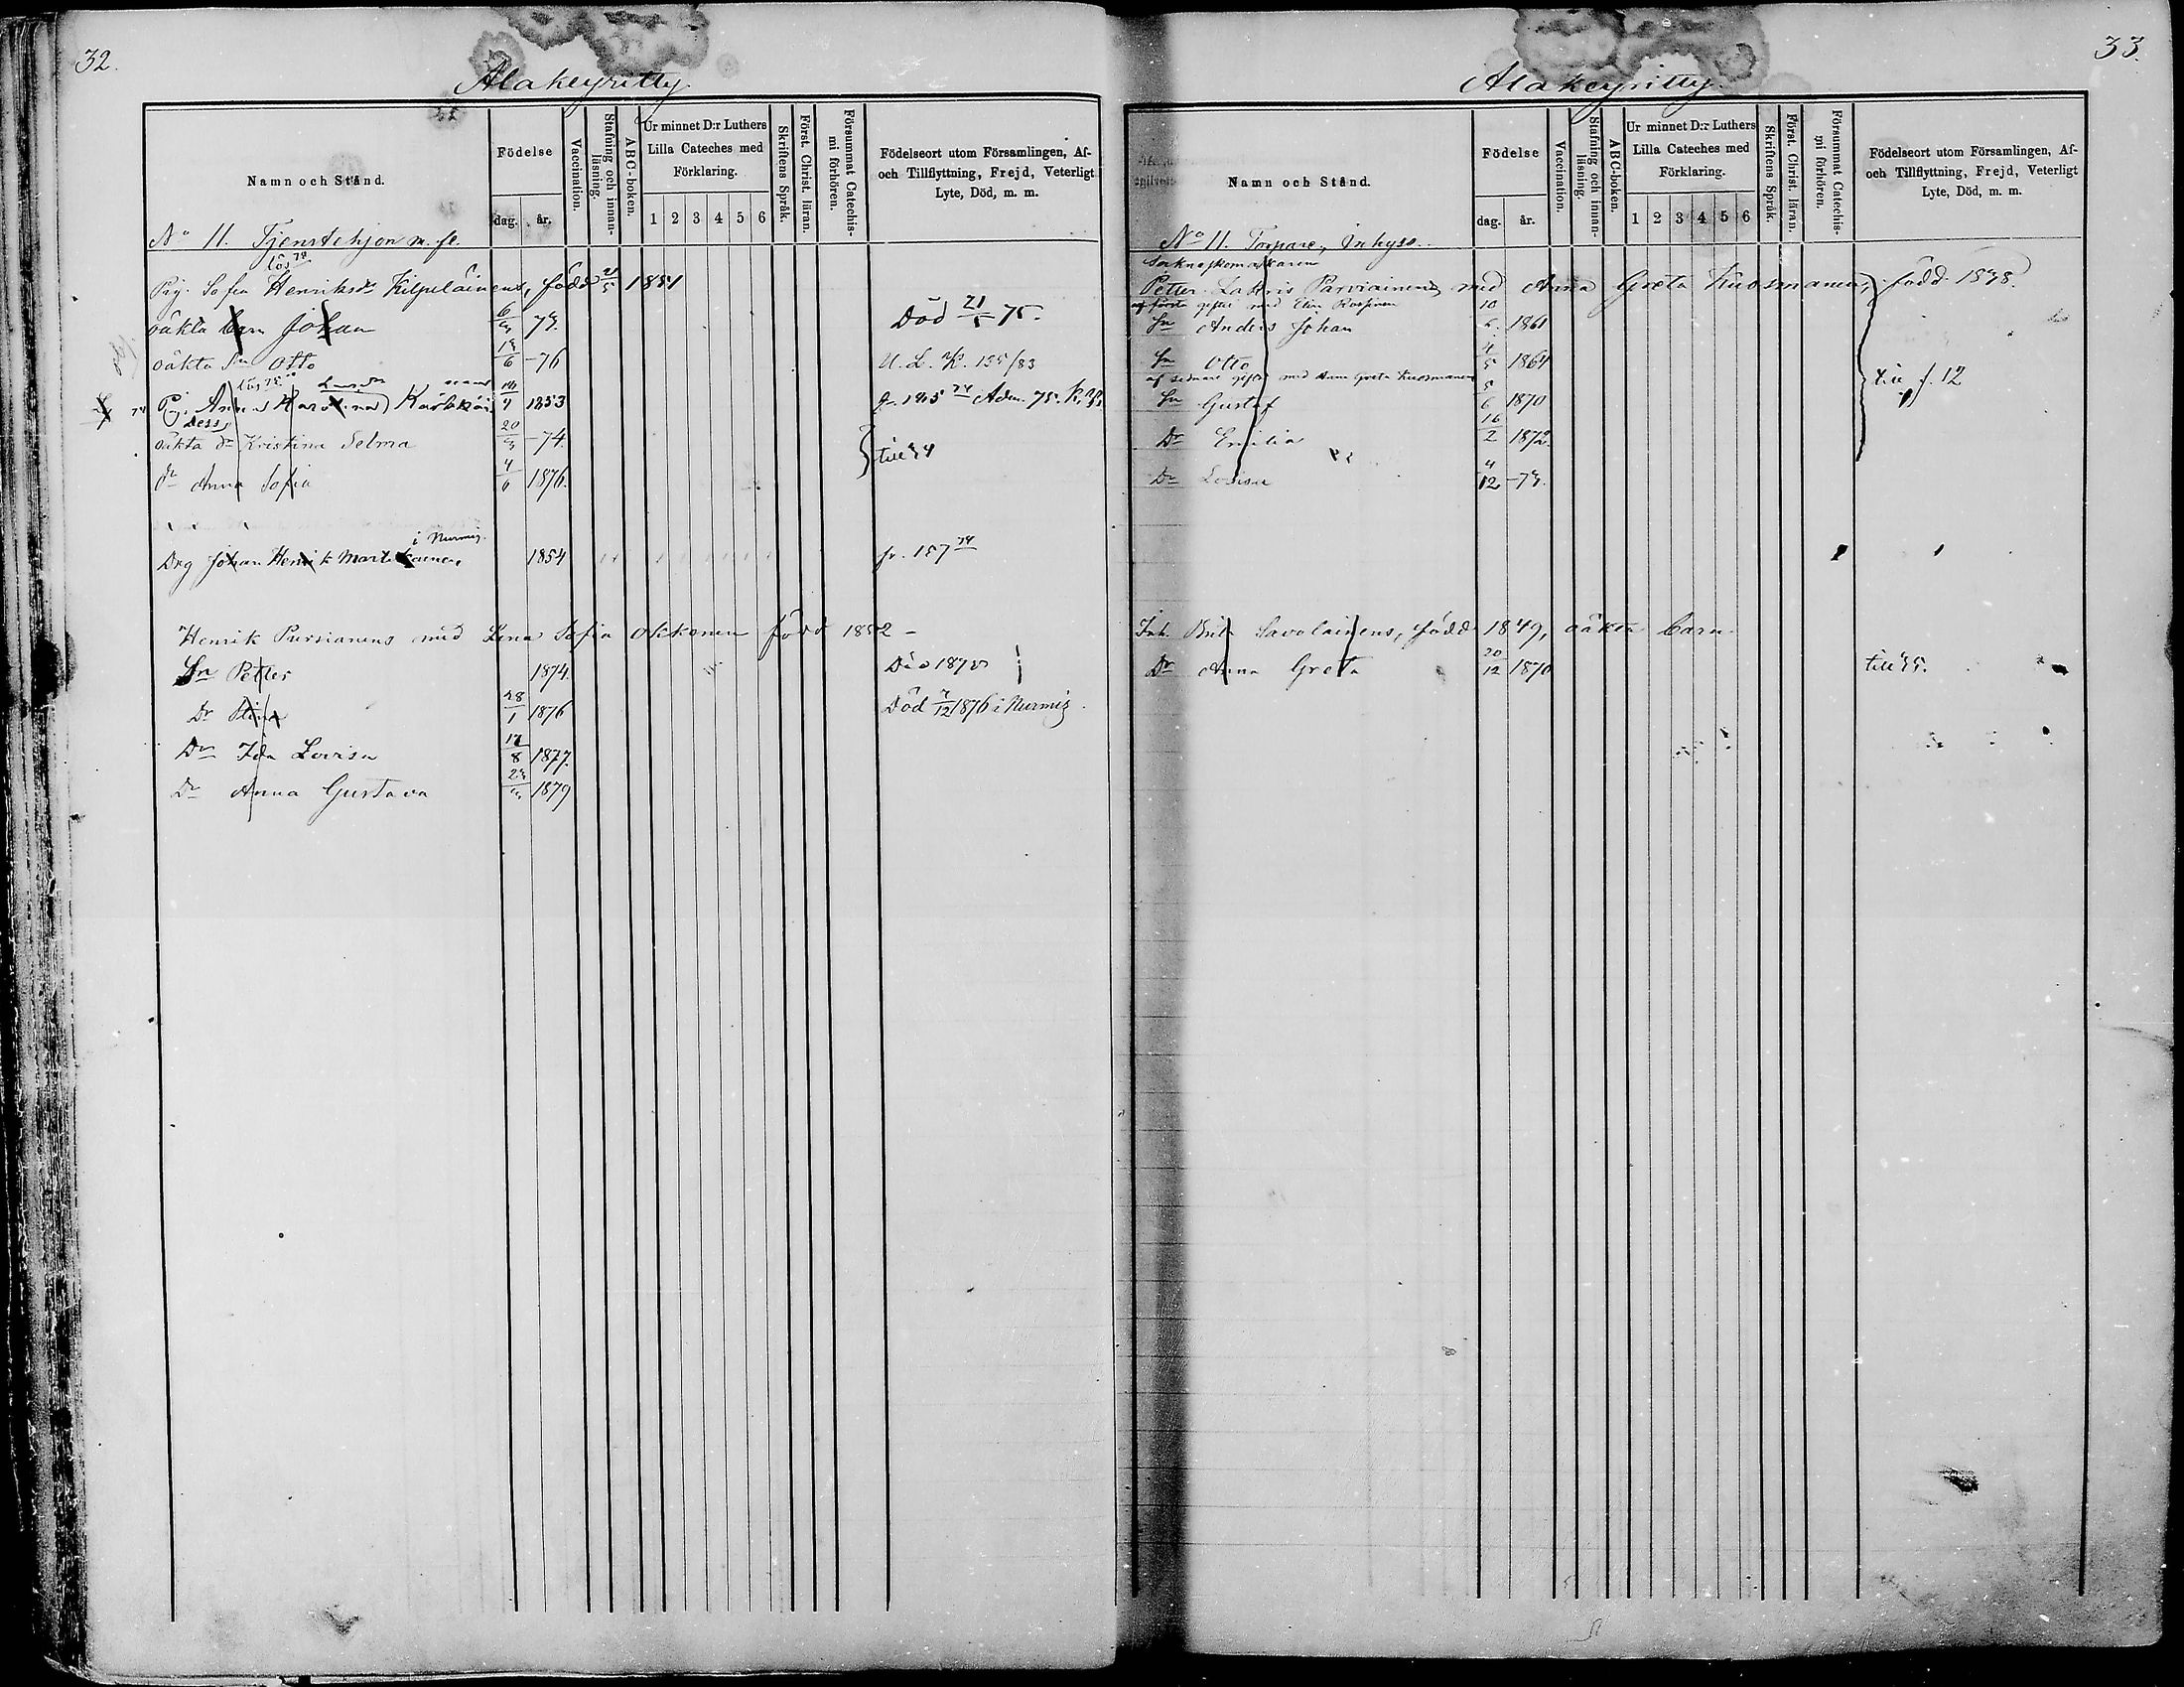 32.
Alakeyritty
Namn och Stånd.
Födelse
dag.
år.
Vaccination.
Stafning och innan-
läsning.
ABC-boken.
Ur minnet D:r Luthers
Lilla Cateches med
Förklaring.
1 2 3 4 5 6
Skriftens Språk.
Först. Christ. läran.
Försummat Catechis-
mi förhören.
Födelseort utom Församlingen, Af-
och Tillflyttning, Frejd, Veterligt
Lyte, Död, m. m.
No 11. Tjenstehjon m. fl.
lös 78
Pig. Sofia Henriksdr Kilpeläinens, född 21/5 1851
oäkta barn Johan 73. Död 21/5 75
oäkta Sn Otto 13/6 -76 U. L. 155/83
lös 75
Pig. Anna Karolina 1853
Dess
oäkta dr Kristina Selma 74. till 34
dr Anna Sofia 4/6 1876.
i Nurmis.
Drg Johan Henrik Martikainen 1854 fr. 157 74
Henrik Pursianens med Lena Sofia Okkonen född 1852 -
Sn Petter 1874. Död 1878
Dr Stina 28/1 1876 Död 1876 i Nurmis.
Dr Ida Lovisa 17/8 1877.
Dr Anna Gustava 1879
33.
Alakeyritty.
Namn och Stånd.
Födelse
dag.
år.
Vaccination.
Stafning och innan-
läsning.
ABC-boken.
Ur minnet D:r Luthers
Lilla Cateches med
Förklaring.
1 2 3 4 5 6
Skriftens Språk.
Först. Christ. läran.
Försummat Catechis-
mi förhören.
Födelseort utom Församlingen, Af-
och Tillflyttning, Frejd, Veterligt
Lyte, Död, m. m.
No 11. Torpare, Inhyse.
Socknoskomakaren
Petter Zakris Parviainens med Anna Greta Kuosmanen, född 1838.
af första giftet med Elin
Sn Anders Johan 1861
Sn Otto 4/5 1864
af sednare giftet med Anna Greta Kuosmanen
till f. 12
Sn Gustaf 5/6 1870
Dr Emilia 16/2 1872.
Dr Lovisa 4/12 -73.
Inh. Brita Savolainens, född 1849, oäkta barn
Dr Anna Greta 20/12 1870 till 35.